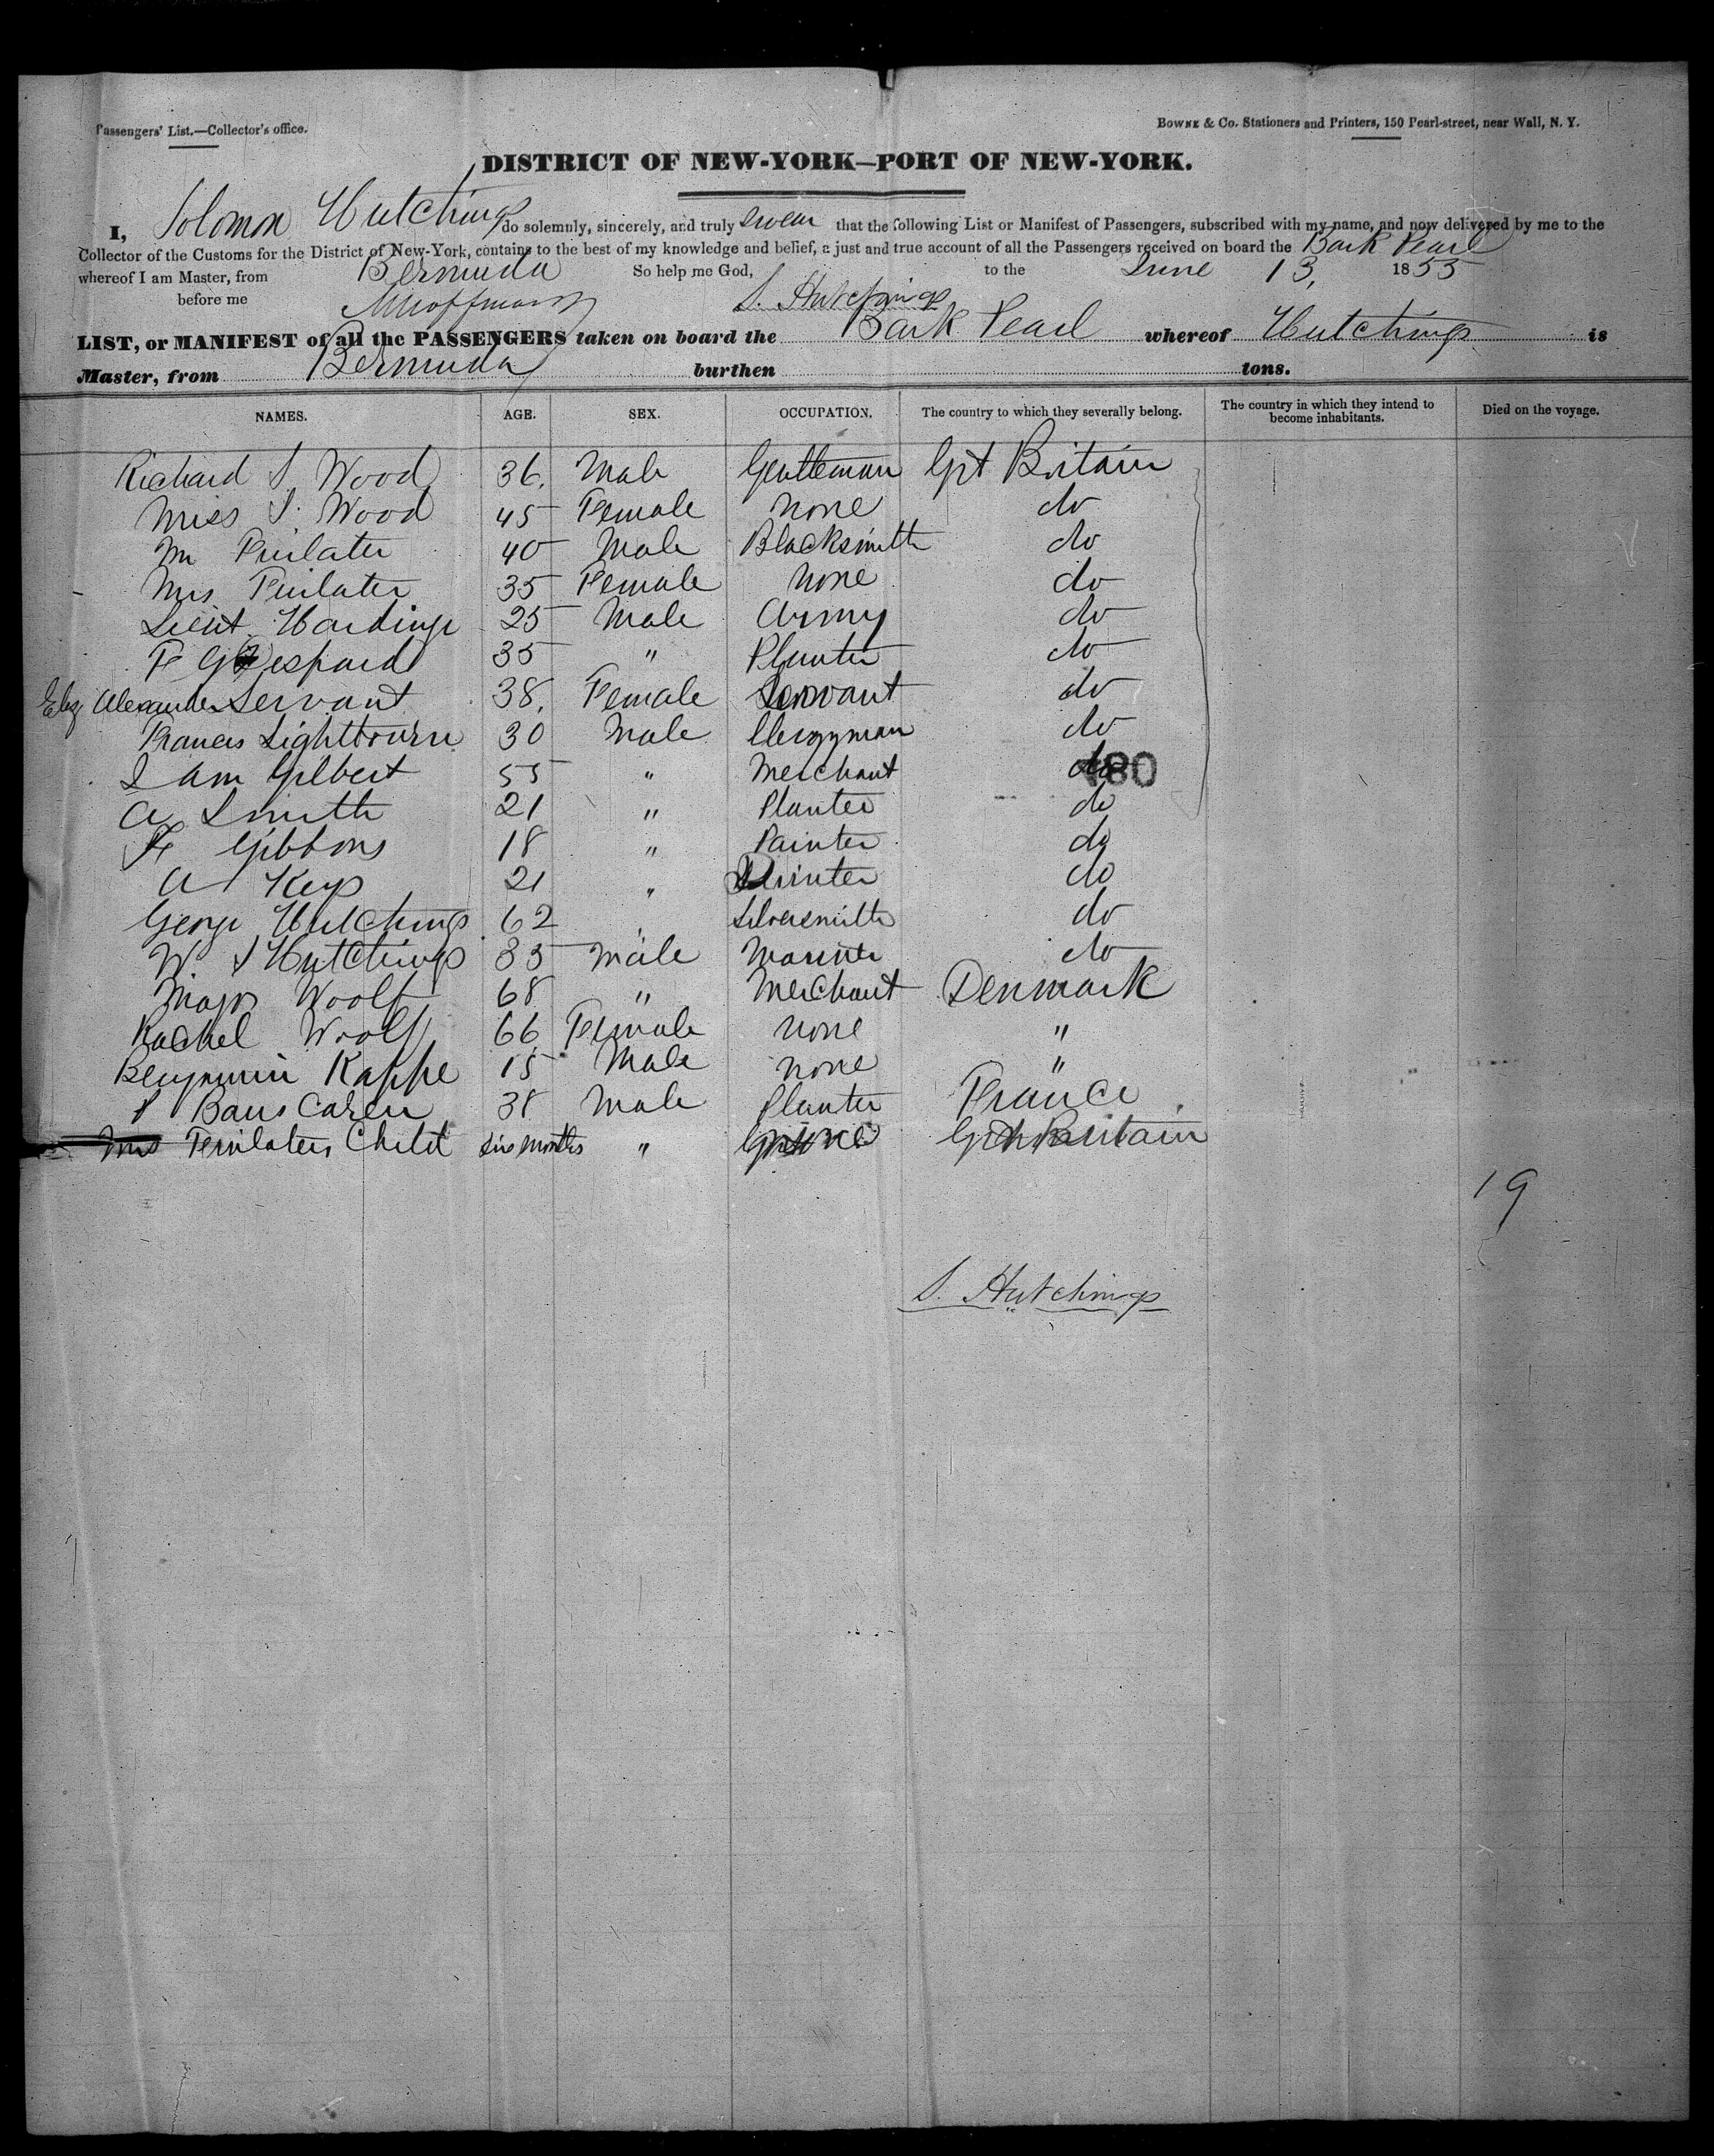 Passengers' List.—Collector's office.
BOWNE & Co. Stationers and Printers, 150 Pearl-street, near Wall, N. Y.
DISTRICT OF NEW-YORK—PORT OF NEW-YORK.
I, Solomon Hutchings do solemnly, sincerely, and truly swear that the following List or Manifest of Passengers, subscribed with my name, and now delivered by me to the
Collector of the Customs for the District of New-York, contains to the best of my knowledge and belief, a just and true account of all the Passengers received on board the Bark Pearl
whereof I am Master, from Bermuda So help me God, to the June 13, 1855
before me S. Hutchings
LIST, or MANIFEST of all the PASSENGERS taken on board the Bark Pearl whereof Hutchings is
Master, from Bermuda burthen tons.
NAMES. AGE. SEX. OCCUPATION. The country to which they severally belong. The country in which they intend to become inhabitants. Died on the voyage.
Richard S Wood 36. Male Gentleman Grt Britain
Miss S. Wood 45 Female None do
40 Male Blacksmith do
Mrs 35 Female None do
Lieut Hardinge 25 Male Army do
35 " Planter do
Eliz Alexander Servant 38. Female Servant do
Francis Lightbourn 30 Male Clergyman do
Gilbert 55 " Merchant do
180
A Smith 21 " Planter do
Gibbons 18 " Painter do
A Keys 21 " do
George Hutchings 62 Silversmith do
W S Hutchings 35 Male Mariner do
Woolf 68 " Merchant Denmark
Rachel Woolf 66 Female None "
Benjamin Kappe 15 Male None "
38 Male Planter France
Child six months " None Grt Britain
19
S. Hutchings